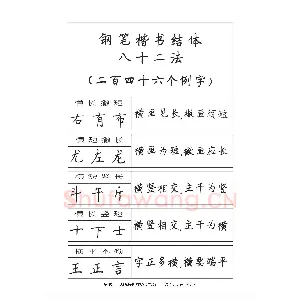 钢笔楷书结体
八十二法
(二百四十六个例字)
横长撇短
右 有 布 横画见长,撇画须短
横短撇长
尤 左 龙 横画为短,撇画应长
斗 干 斤 横竖相交,主干为竖
横长竖短
十 下 士 横竖相交,主干为横
王 正 言 字正多横,横要端平